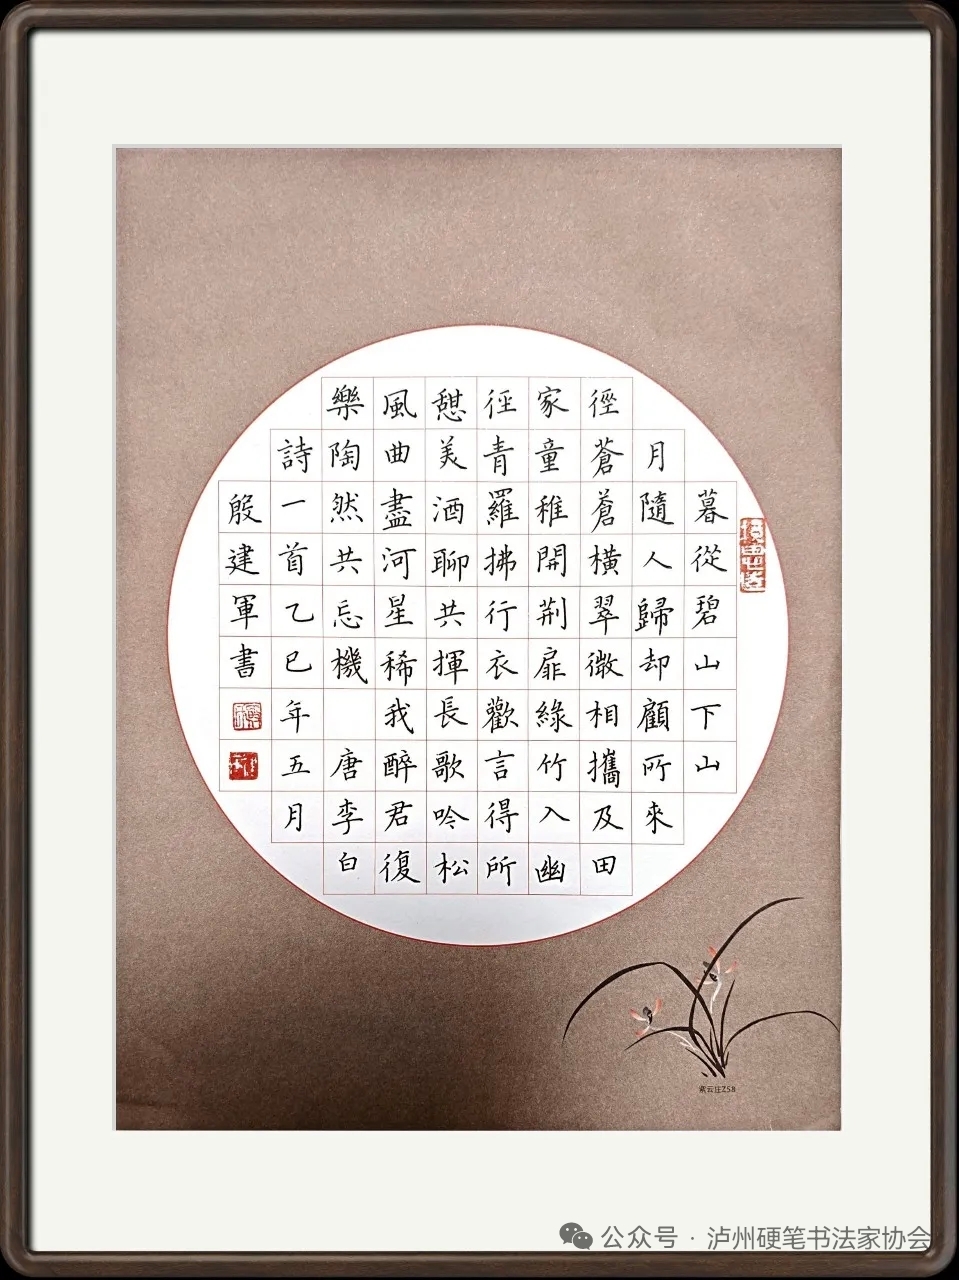 暮從碧山下山
月隨人歸却顧所來
徑蒼蒼橫翠微相攜及田
家童稚開荆扉綠竹入幽
徑青羅拂行衣歡言得所
憇美酒聊共揮長歌吟松
風曲盡河星稀我醉君復
樂陶然共忘機 唐李白
詩一首乙巳年五月
殷建軍書
紫云庄Z58
公众号 · 泸州硬笔书法家协会